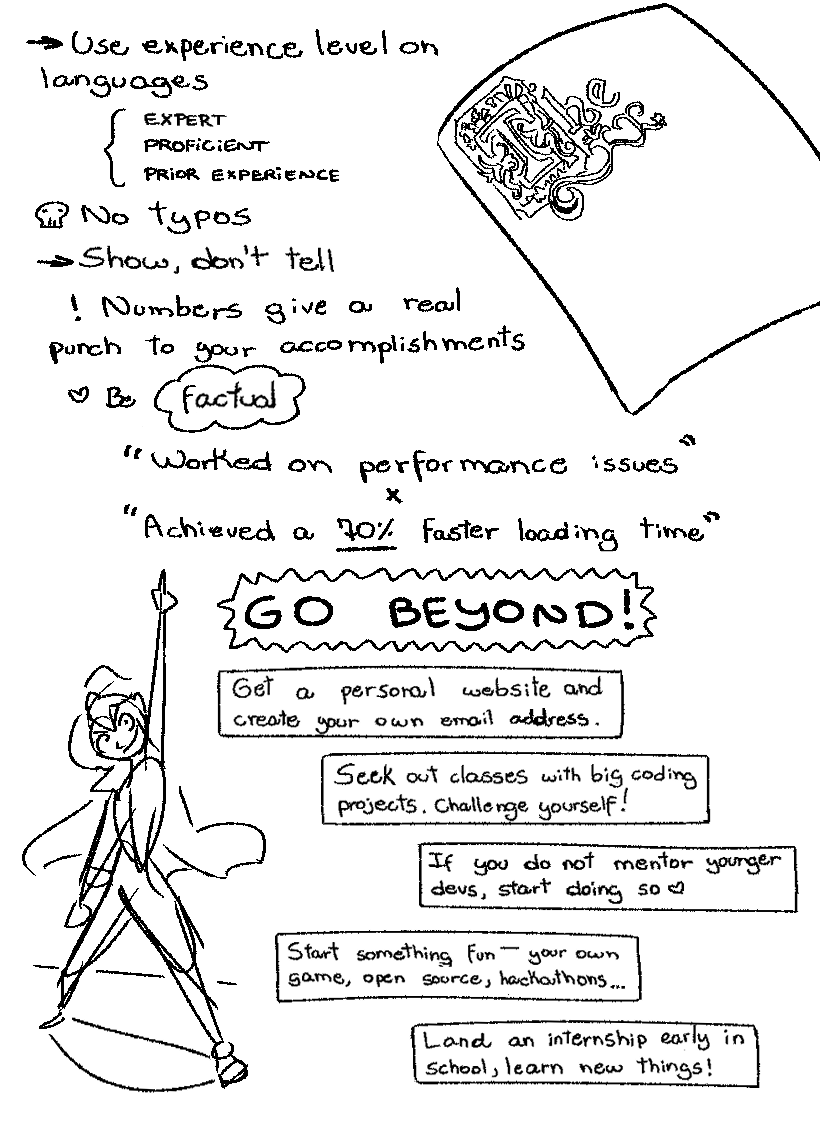 → Use experience level on
languages
EXPERT
PROFICIENT
PRIOR EXPERIENCE
No typos
→ Show, don't tell
! Numbers give a real
punch to your accomplishments
♡ Be factual
"Worked on performance issues"
x
"Achieved a 70% faster loading time"
GO BEYOND!
Get a personal website and
create your own email address.
Seek out classes with big coding
projects. Challenge yourself!
If you do not mentor younger
devs, start doing so ♡
Start something fun — your own
game, open source, hackathons...
Land an internship early in
school, learn new things!